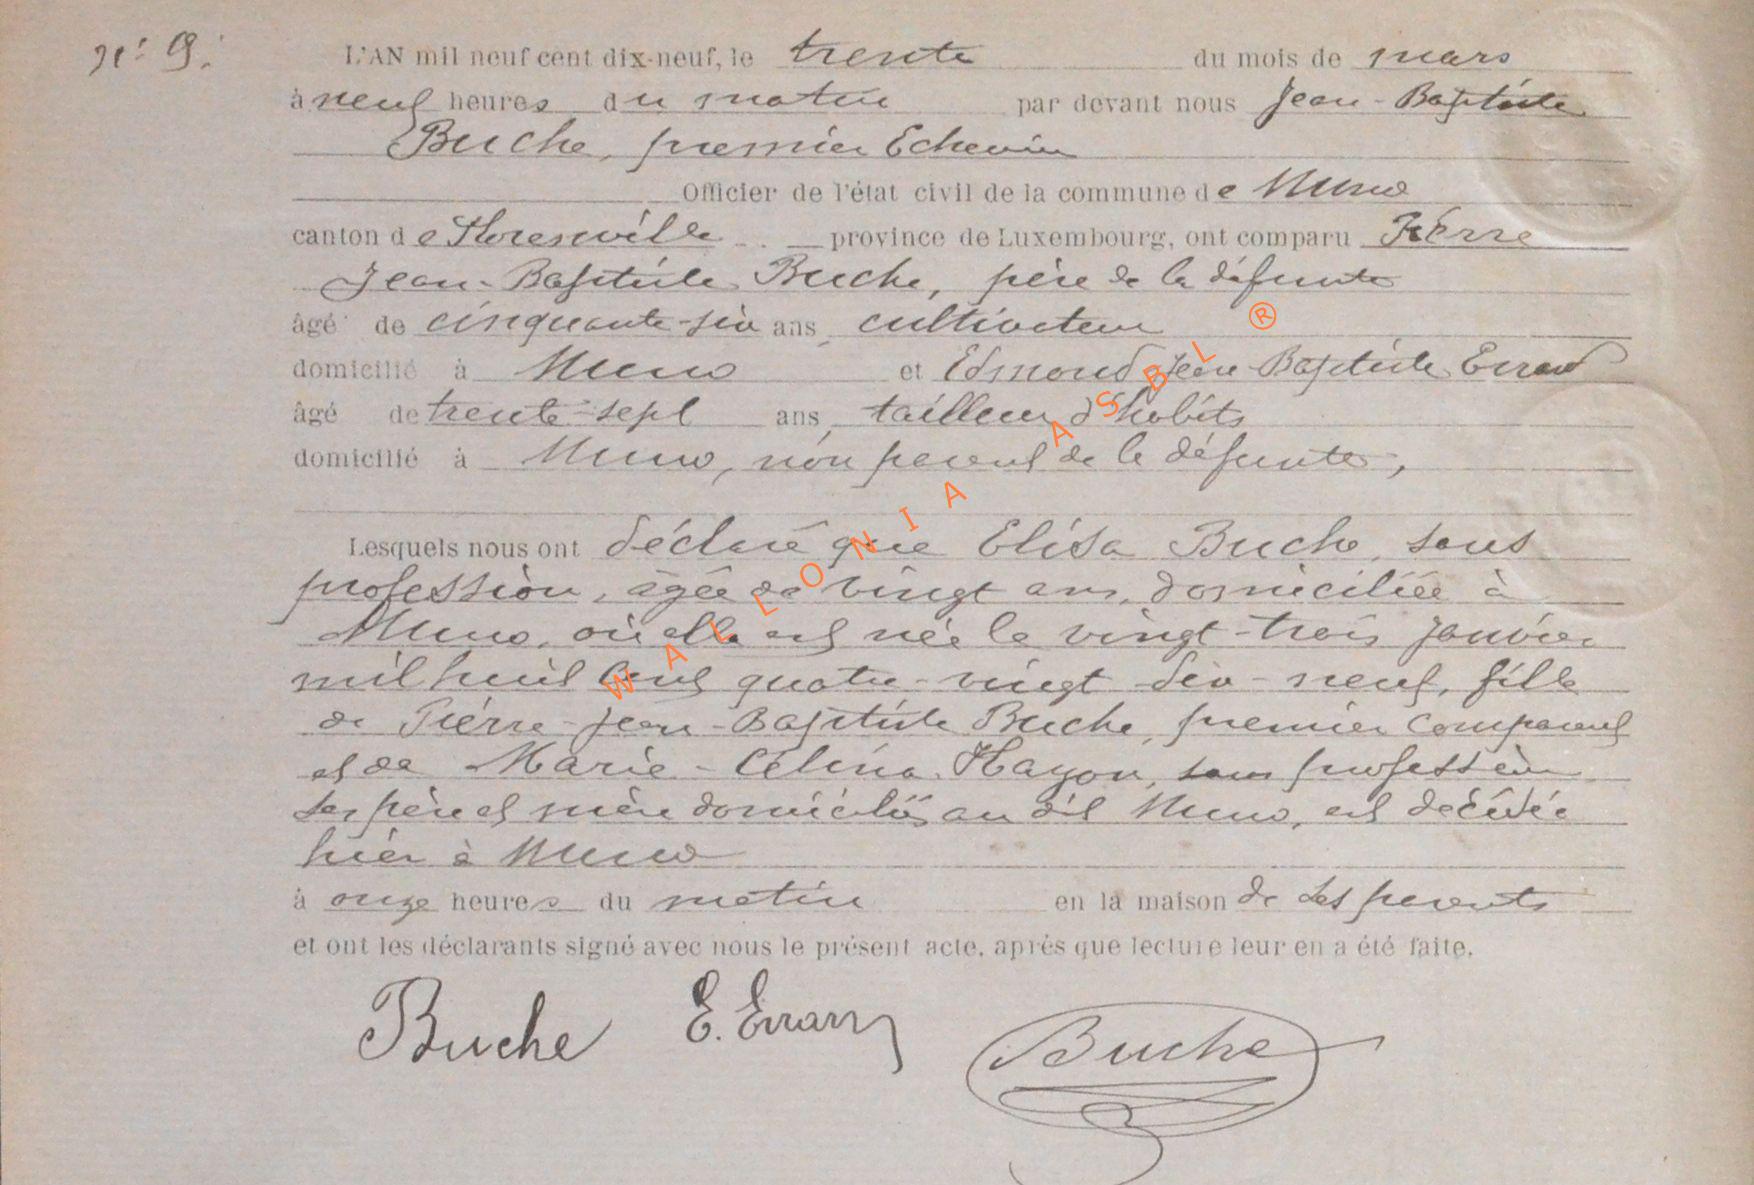 n° 9.
L'AN mil neuf cent dix-neuf, le trente du mois de mars
à neuf heures du matin par devant nous Jean-Baptiste
Buche, premier Echevin
Officier de l'état civil de la commune de Muno
canton de Florenville province de Luxembourg, ont comparu Pierre
Jean-Baptiste Buche, père de la défunte
âgé de cinquante-six ans, cultivateur
domicilié à Muno et Edmond Jean-Baptiste Errard
âgé de trente-sept ans, tailleur d'habits
domicilié à Muno, non parent de la défunte,
Lesquels nous ont déclaré que Elisa Buche, sans
profession, âgée de vingt ans, domiciliée à
Muno, où elle est née le vingt-trois janvier
mil huit cent quatre-vingt-dix-neuf, fille
de Pierre-Jean-Baptiste Buche, premier comparant
et de Marie-Célina Hayon, sans profession
ses père et mère domiciliés au dit Muno, est décédée
hier à Muno
à onze heures du matin en la maison de ses parents
et ont les déclarants signé avec nous le présent acte, après que lecture leur en a été faite.
Buche E. Errard Buche
WALLONIA ASBL ®